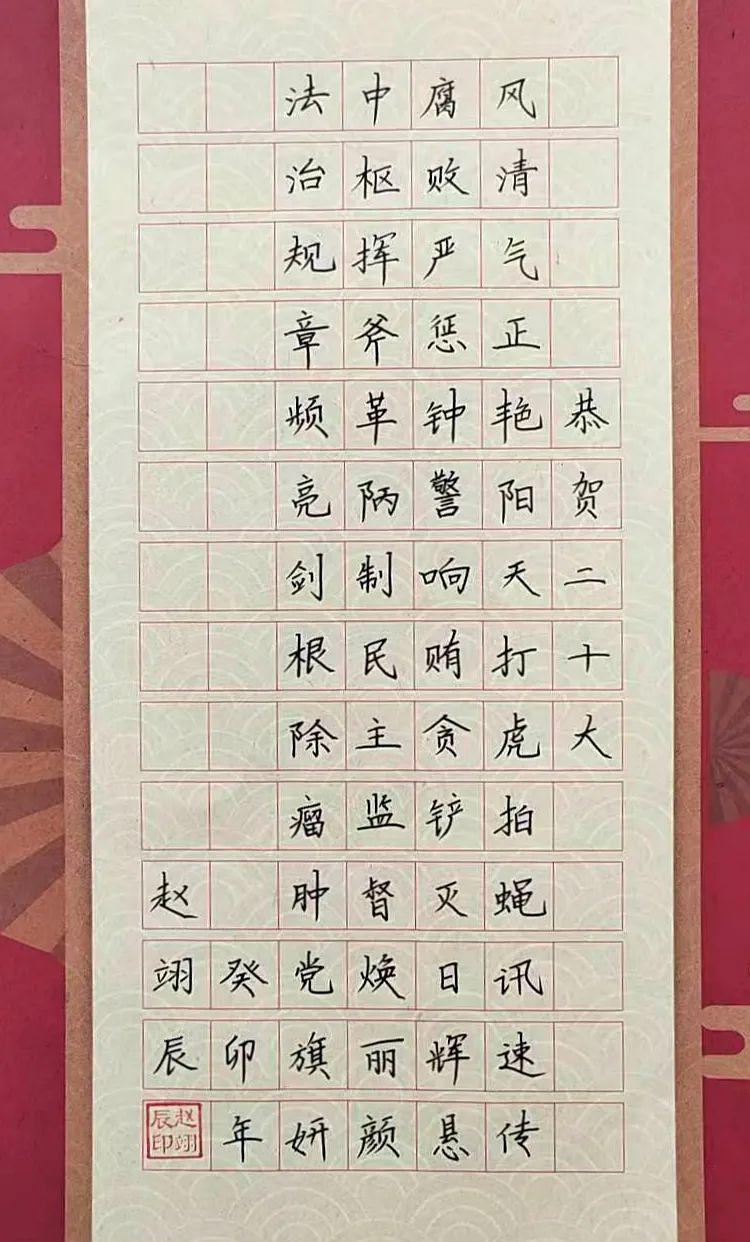 恭贺二十大
风清气正艳阳天打虎拍蝇讯速传
腐败严惩钟警响贿贪铲灭日辉悬
中枢挥斧革陋制民主监督焕丽颜
法治规章频亮剑根除瘤肿党旗妍
癸卯年
赵翊辰
赵翊辰印